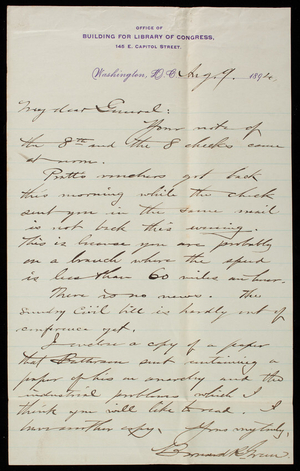 OFFICE OF
BUILDING FOR LIBRARY OF CONGRESS,
145 E. CAPITOL STREET.
Washington, D. C. Aug. 9. 1894.
My dear General:
Your note of
the 8th and the 8 checks came
at noon.
Pratt's vouchers got back
this morning while the check
sent you in the same mail
is not back this evening.
This is because you are probably
on a branch where the speed
is less than 60 miles an hour.
There is no news. The
Sundry Civil bill is hardly out of
conference yet.
I enclose a copy of a paper
that Patterson sent containing a
paper of his on anarchy and the
industrial problems which I
think you will like to read. I
have another copy. Yours truly,
Bernard R. Green